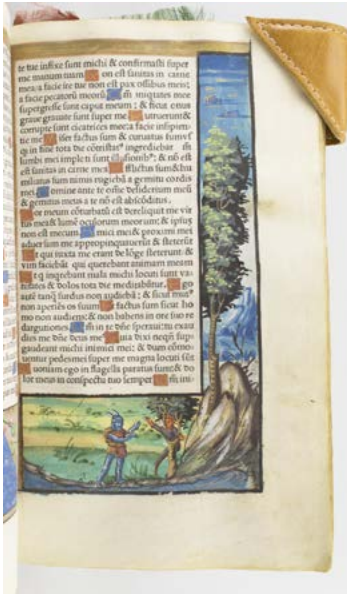 te tue infixe sunt michi & confirmasti super
me manum tuam on est sanitas in carne
mea: a facie ire tue non est pax ossibus meis:
a facie peccatorũ meorũ m iniquitates mee
supergresse sunt caput meum: & sicut onus
graue grauate sunt super me utruerunt &
corrupte sunt cicatrices mee: a facie insipien
tie mee iser factus sum & curuatus sum usq̃
in finẽ tota die cõtristatꝰ ingrediebar m
lumbi mei impleti sunt illusionibꝰ: & nõ est
est sanitas in carne mea fflictus sum & hu
miliatus sum nimis rugiebã a gemitu cordis
mei omine ante te omne desiderium meũ
& gemitus meus a te nõ est absconditus
or meum cõturbatũ est dereliquit me vir
tus mea & lumẽ oculorum meorum: & ipsuʒ
non est mecum mici mei & proximi mei
aduersum me appropinquauerũt & steterũt
t qui iuxta me erant de lõge steterunt: &
vim faciebãt qui querebant animam meam
t q̃ inq̃rebant mala michi locuti sunt va
nitates & dolos tota die meditabãtur go
autẽ tanq̃ surdus non audiebã: & sicut mutꝰ
non aperiẽs os suum t factus sum sicut ho
mo non audiens: & non habens in ore suo re
dargutiones m in te dñe speraui: tu exau
dies me dñe deus meus uia dixi neqñ sup̃
gaudeant michi inimici mei: & dum cõmo
uentur pedes mei super me magna locuti sũt
uoniam ego in flagella paratus sum: & do
lor meus in conspectu tuo semper m ini-